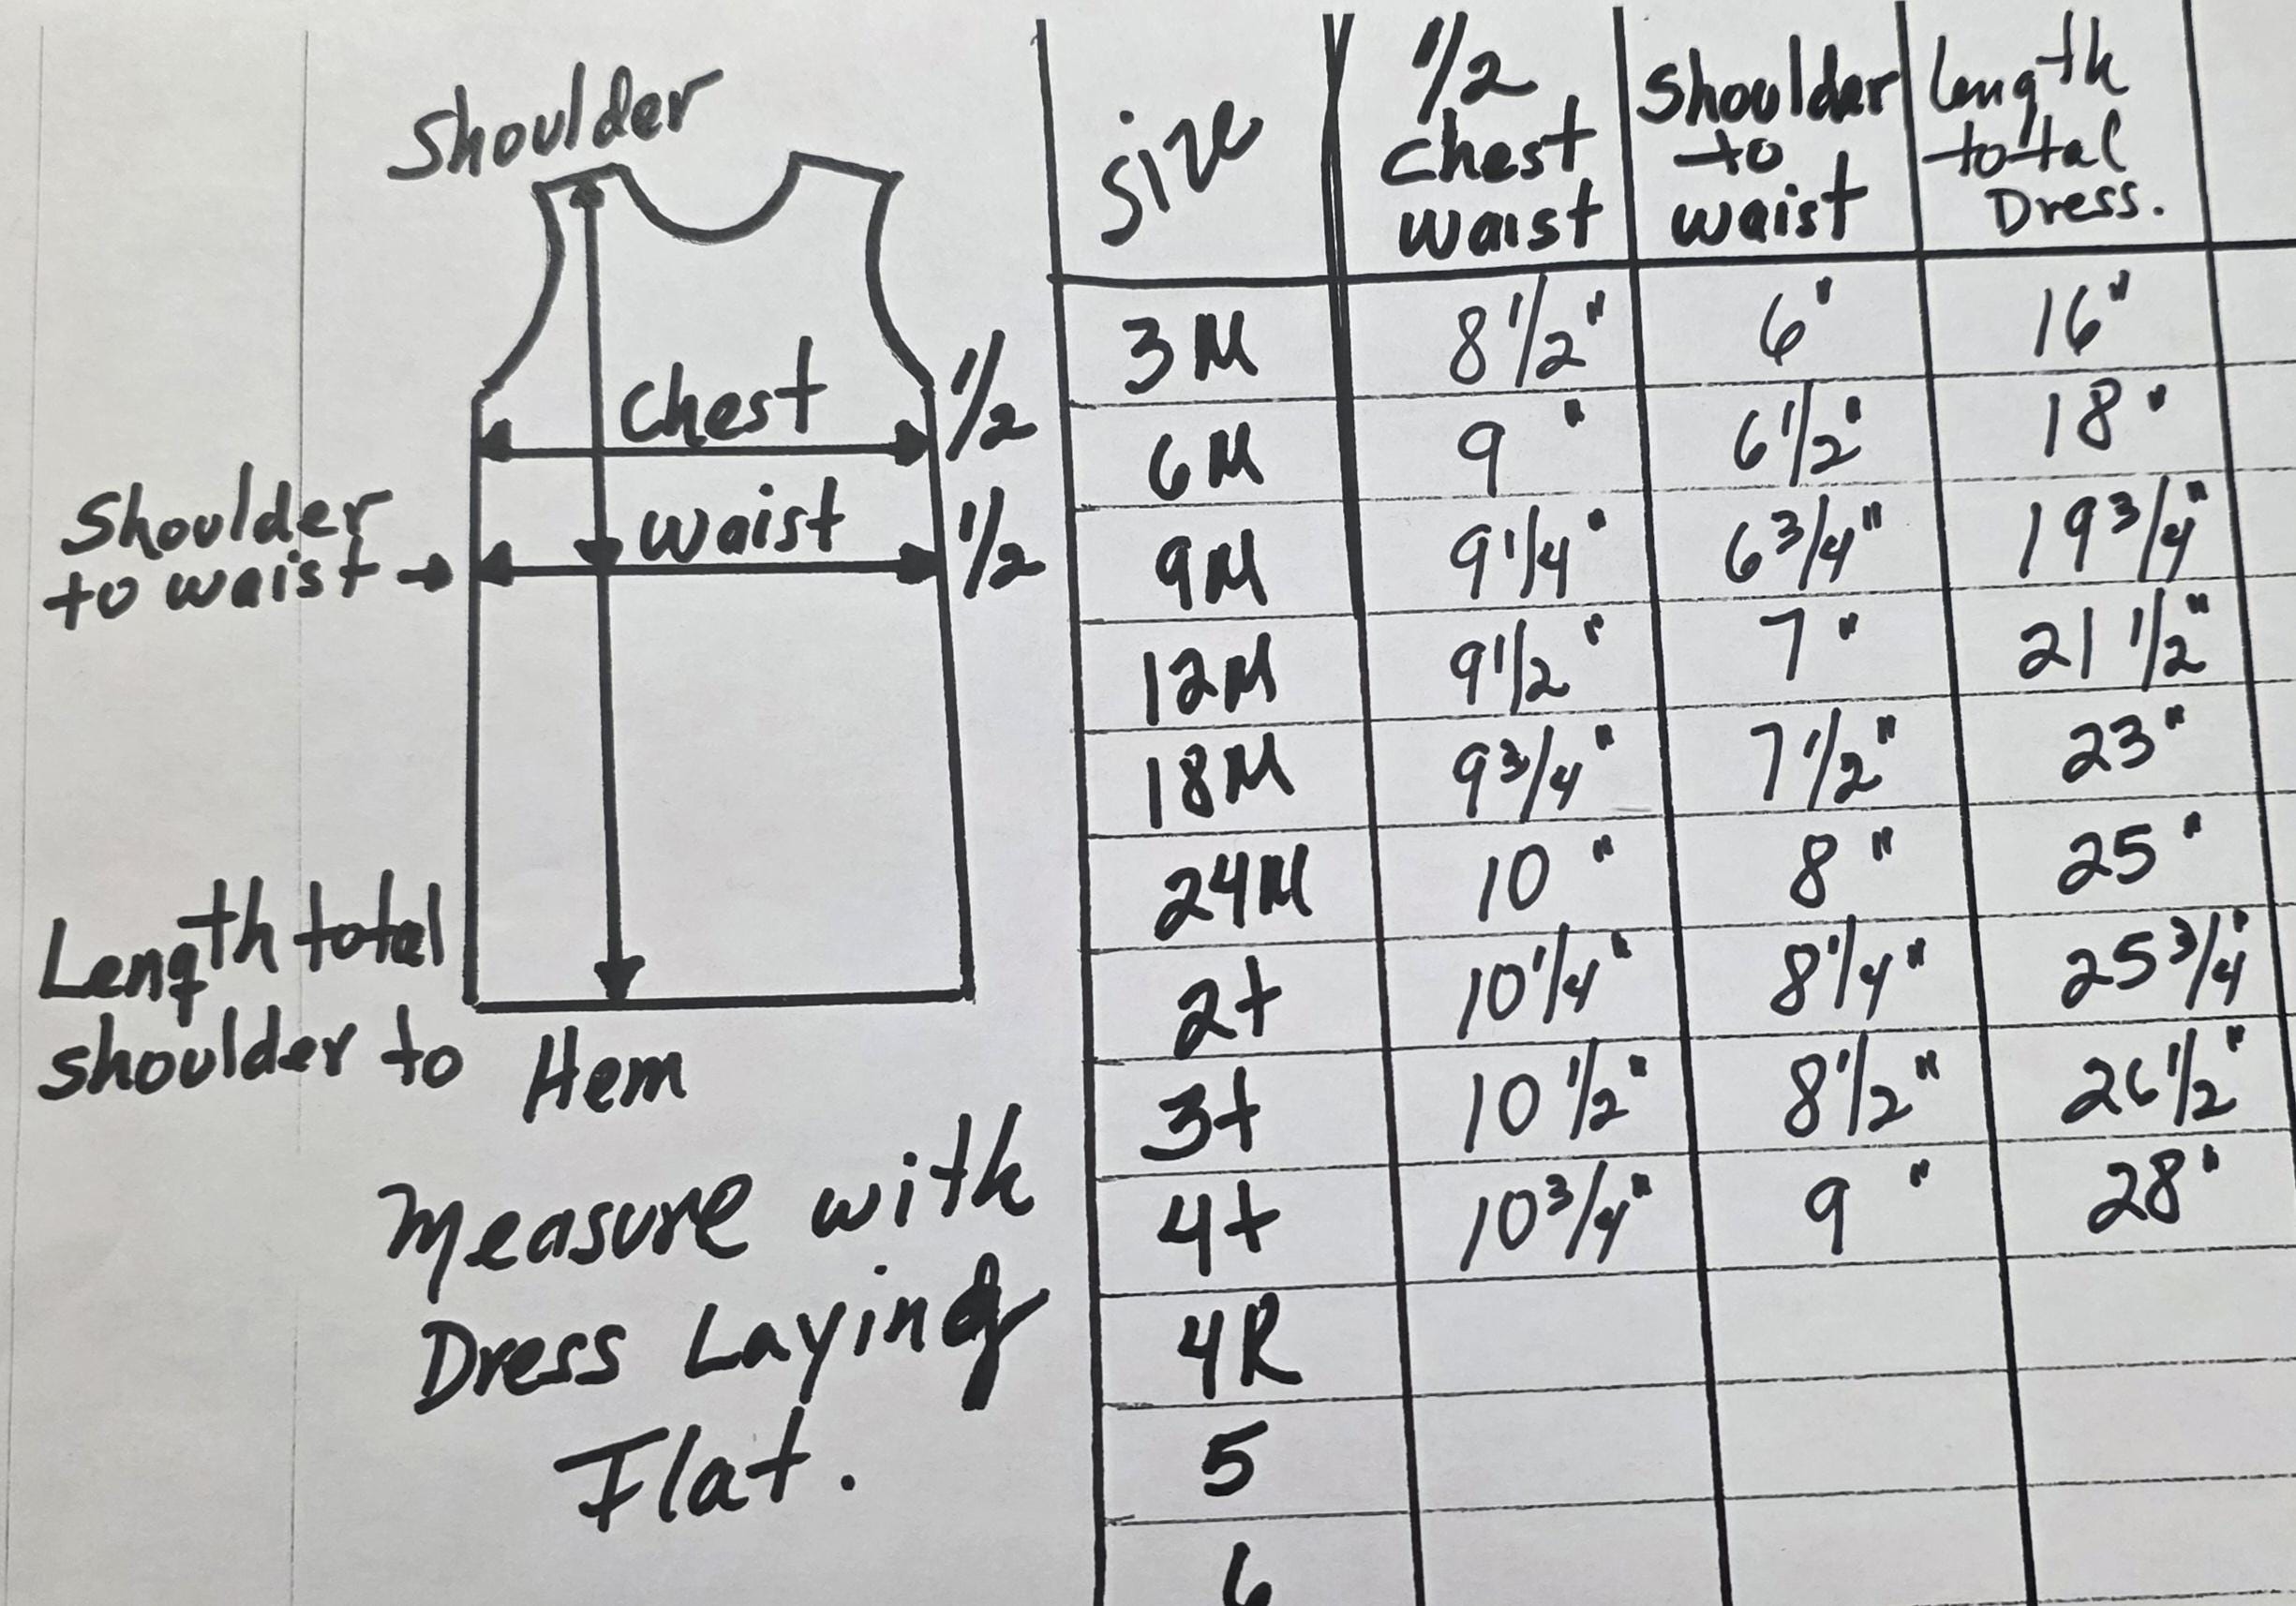 Shoulder
Chest 1/2
Waist 1/2
Shoulder
to waist
Length total
shoulder to Hem
Measure with
Dress Laying
Flat.
Size
1/2
Chest
waist
Shoulder
to
waist
Length
total
Dress.
3M 8 1/2" 6" 16"
6M 9" 6 1/2" 18"
9M 9 1/4" 6 3/4" 19 3/4"
12M 9 1/2" 7" 21 1/2"
18M 9 3/4" 7 1/2" 23"
24M 10" 8" 25"
2t 10 1/4" 8 1/4" 25 3/4"
3t 10 1/2" 8 1/2" 26 1/2"
4t 10 3/4" 9" 28"
4R
5
6